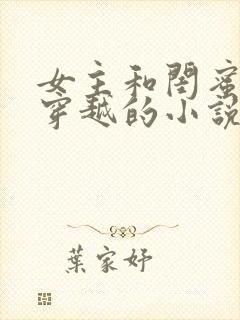 女主和閨蜜
穿越的小說
葉家妤